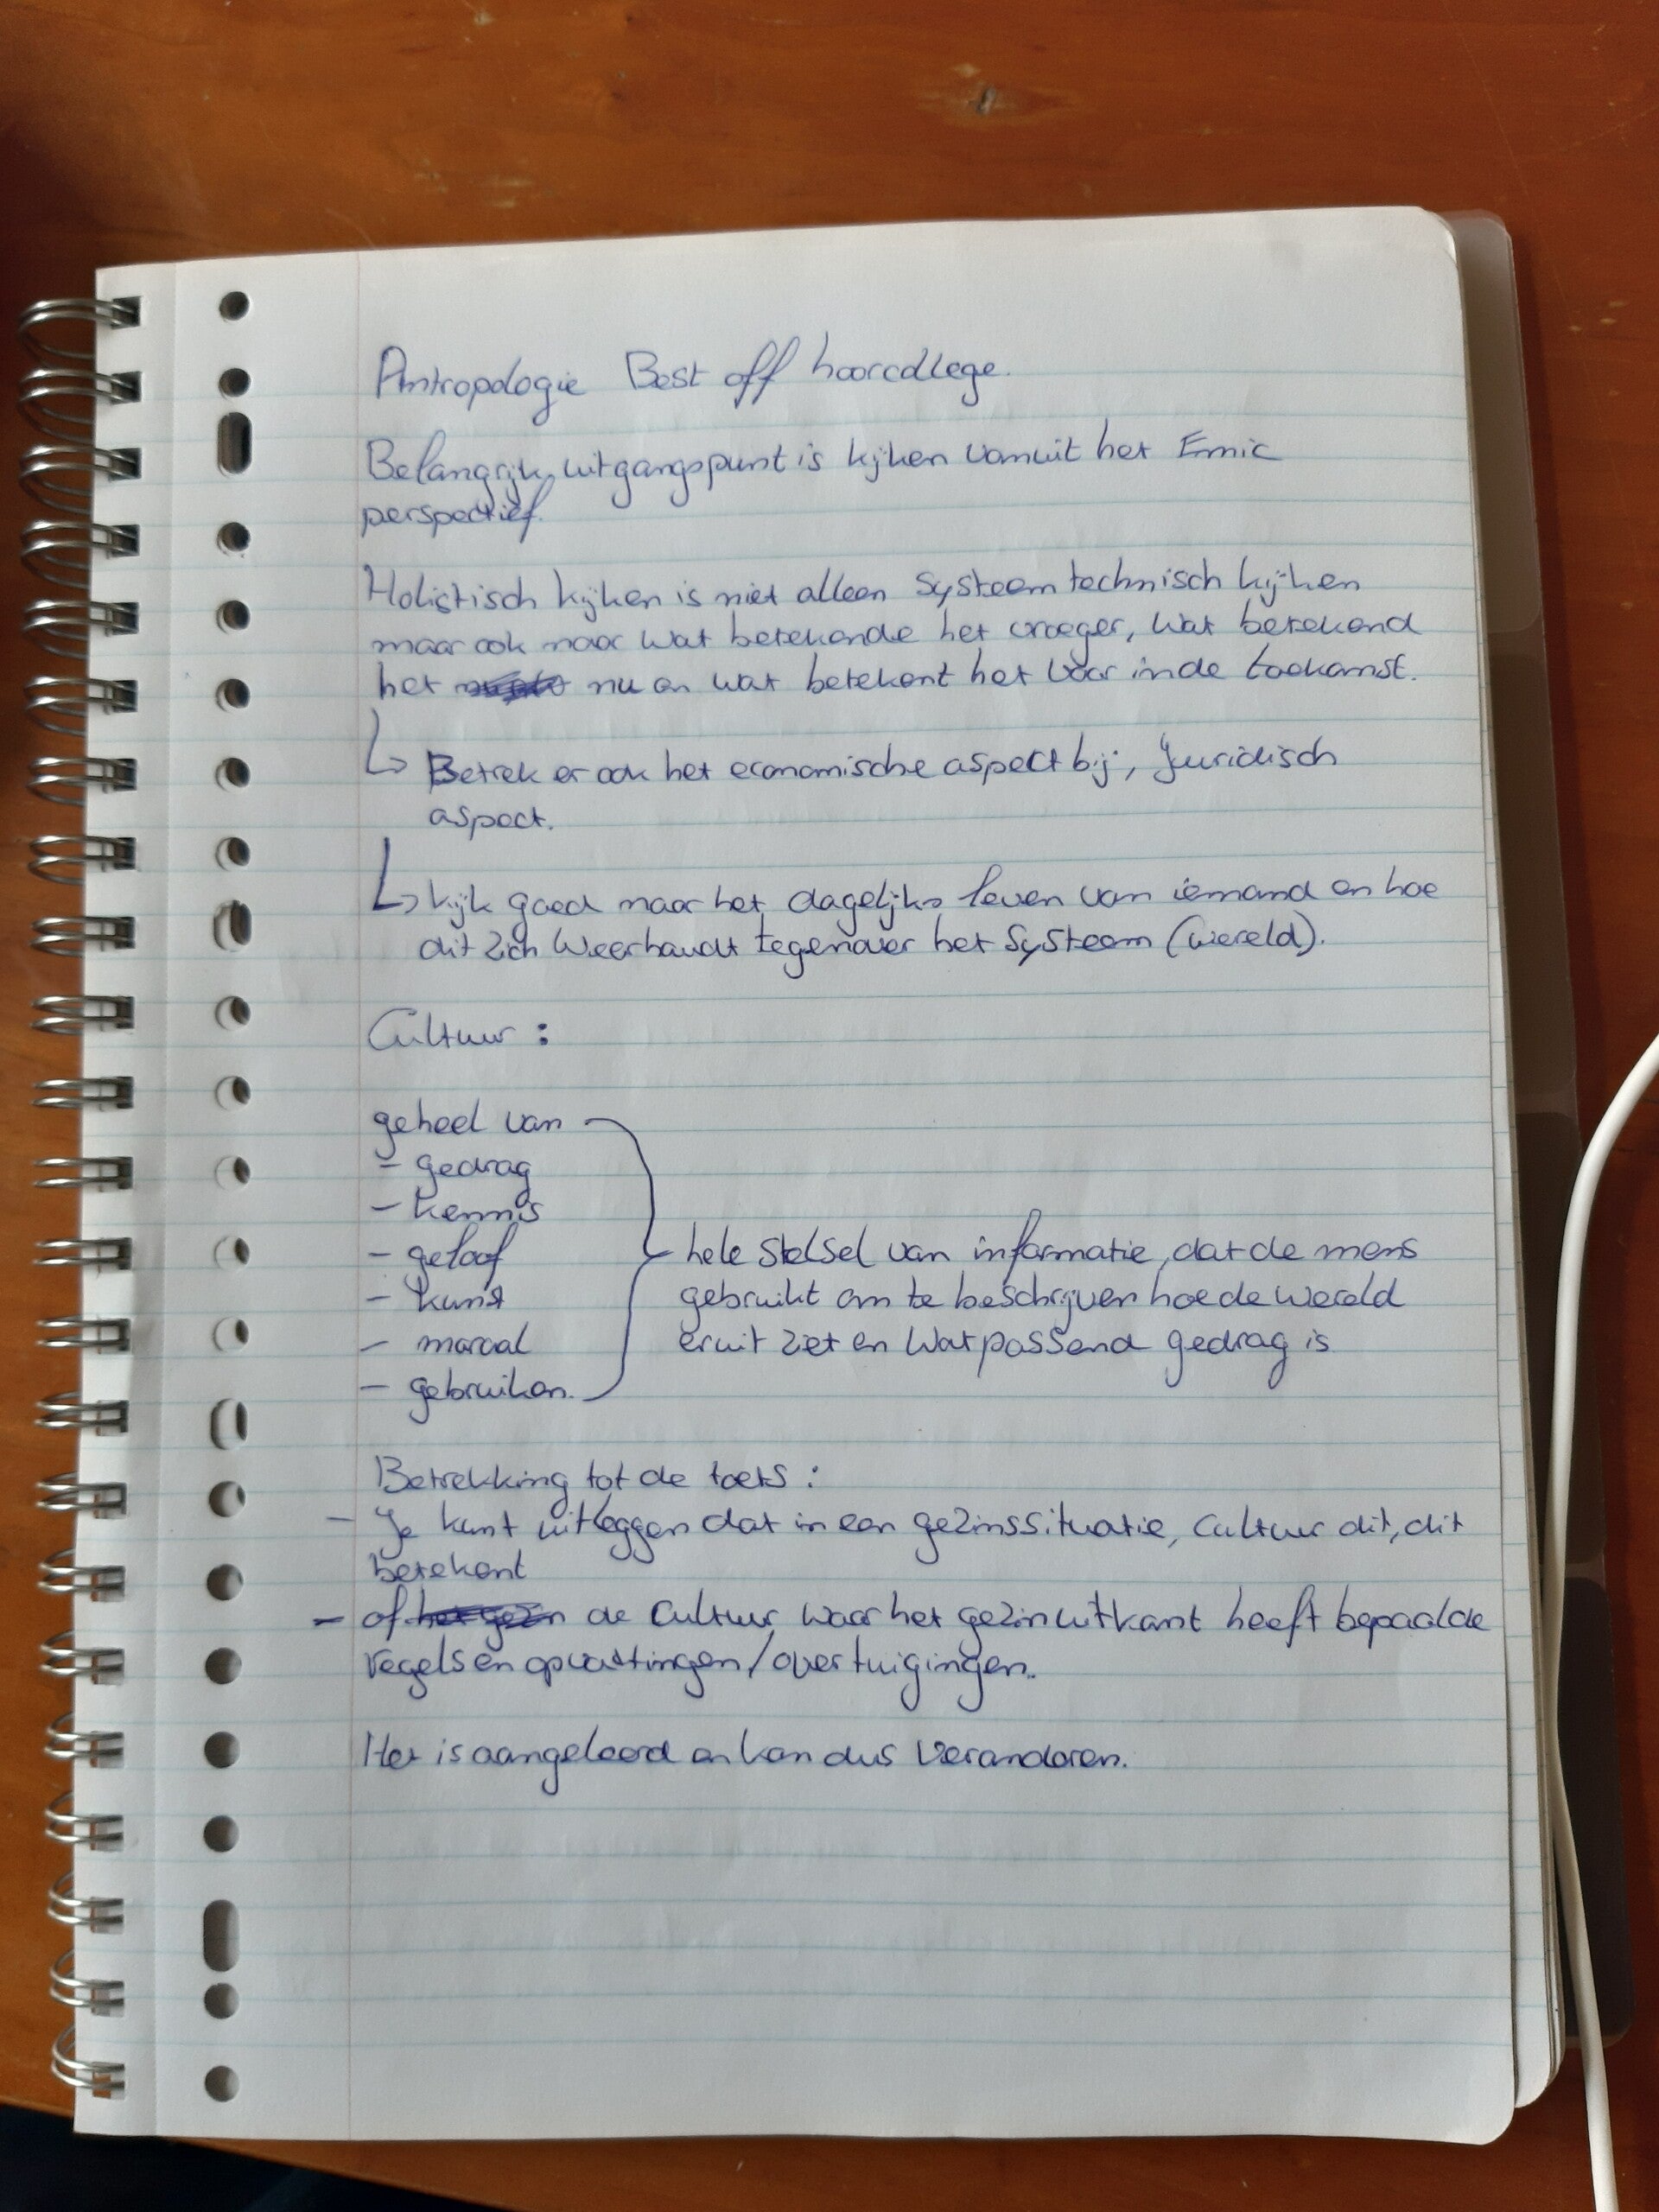 Antropologie Best off hoorcollege.
Belangrijk uitgangspunt is kijken vanuit het Emic
perspectief.
Holistisch kijken is niet alleen Systeem technisch kijken
maar ook naar wat betekende het vroeger, wat betekend
het nu en wat betekent het voor in de toekomst.
↳ Betrek er ook het economische aspect bij, Juridisch
aspect.
↳ kijk goed naar het dagelijks leven van iemand en hoe
dit zich weerhoudt tegenover het systeem (wereld).
Cultuur :
geheel van
- gedrag
- kennis
- geloof
- kunst
- moraal
- gebruiken.
hele stelsel van informatie, dat de mens
gebruikt om te beschrijven hoe de wereld
eruit ziet en wat passend gedrag is
Betrekking tot de toets :
- Je kunt uitleggen dat in een gezinssituatie, cultuur dit, dit
betekent
- of het gezin de cultuur waar het gezin uitkomt heeft bepaalde
regels en opvattingen/overtuigingen.
Het is aangeleerd en kan dus veranderen.